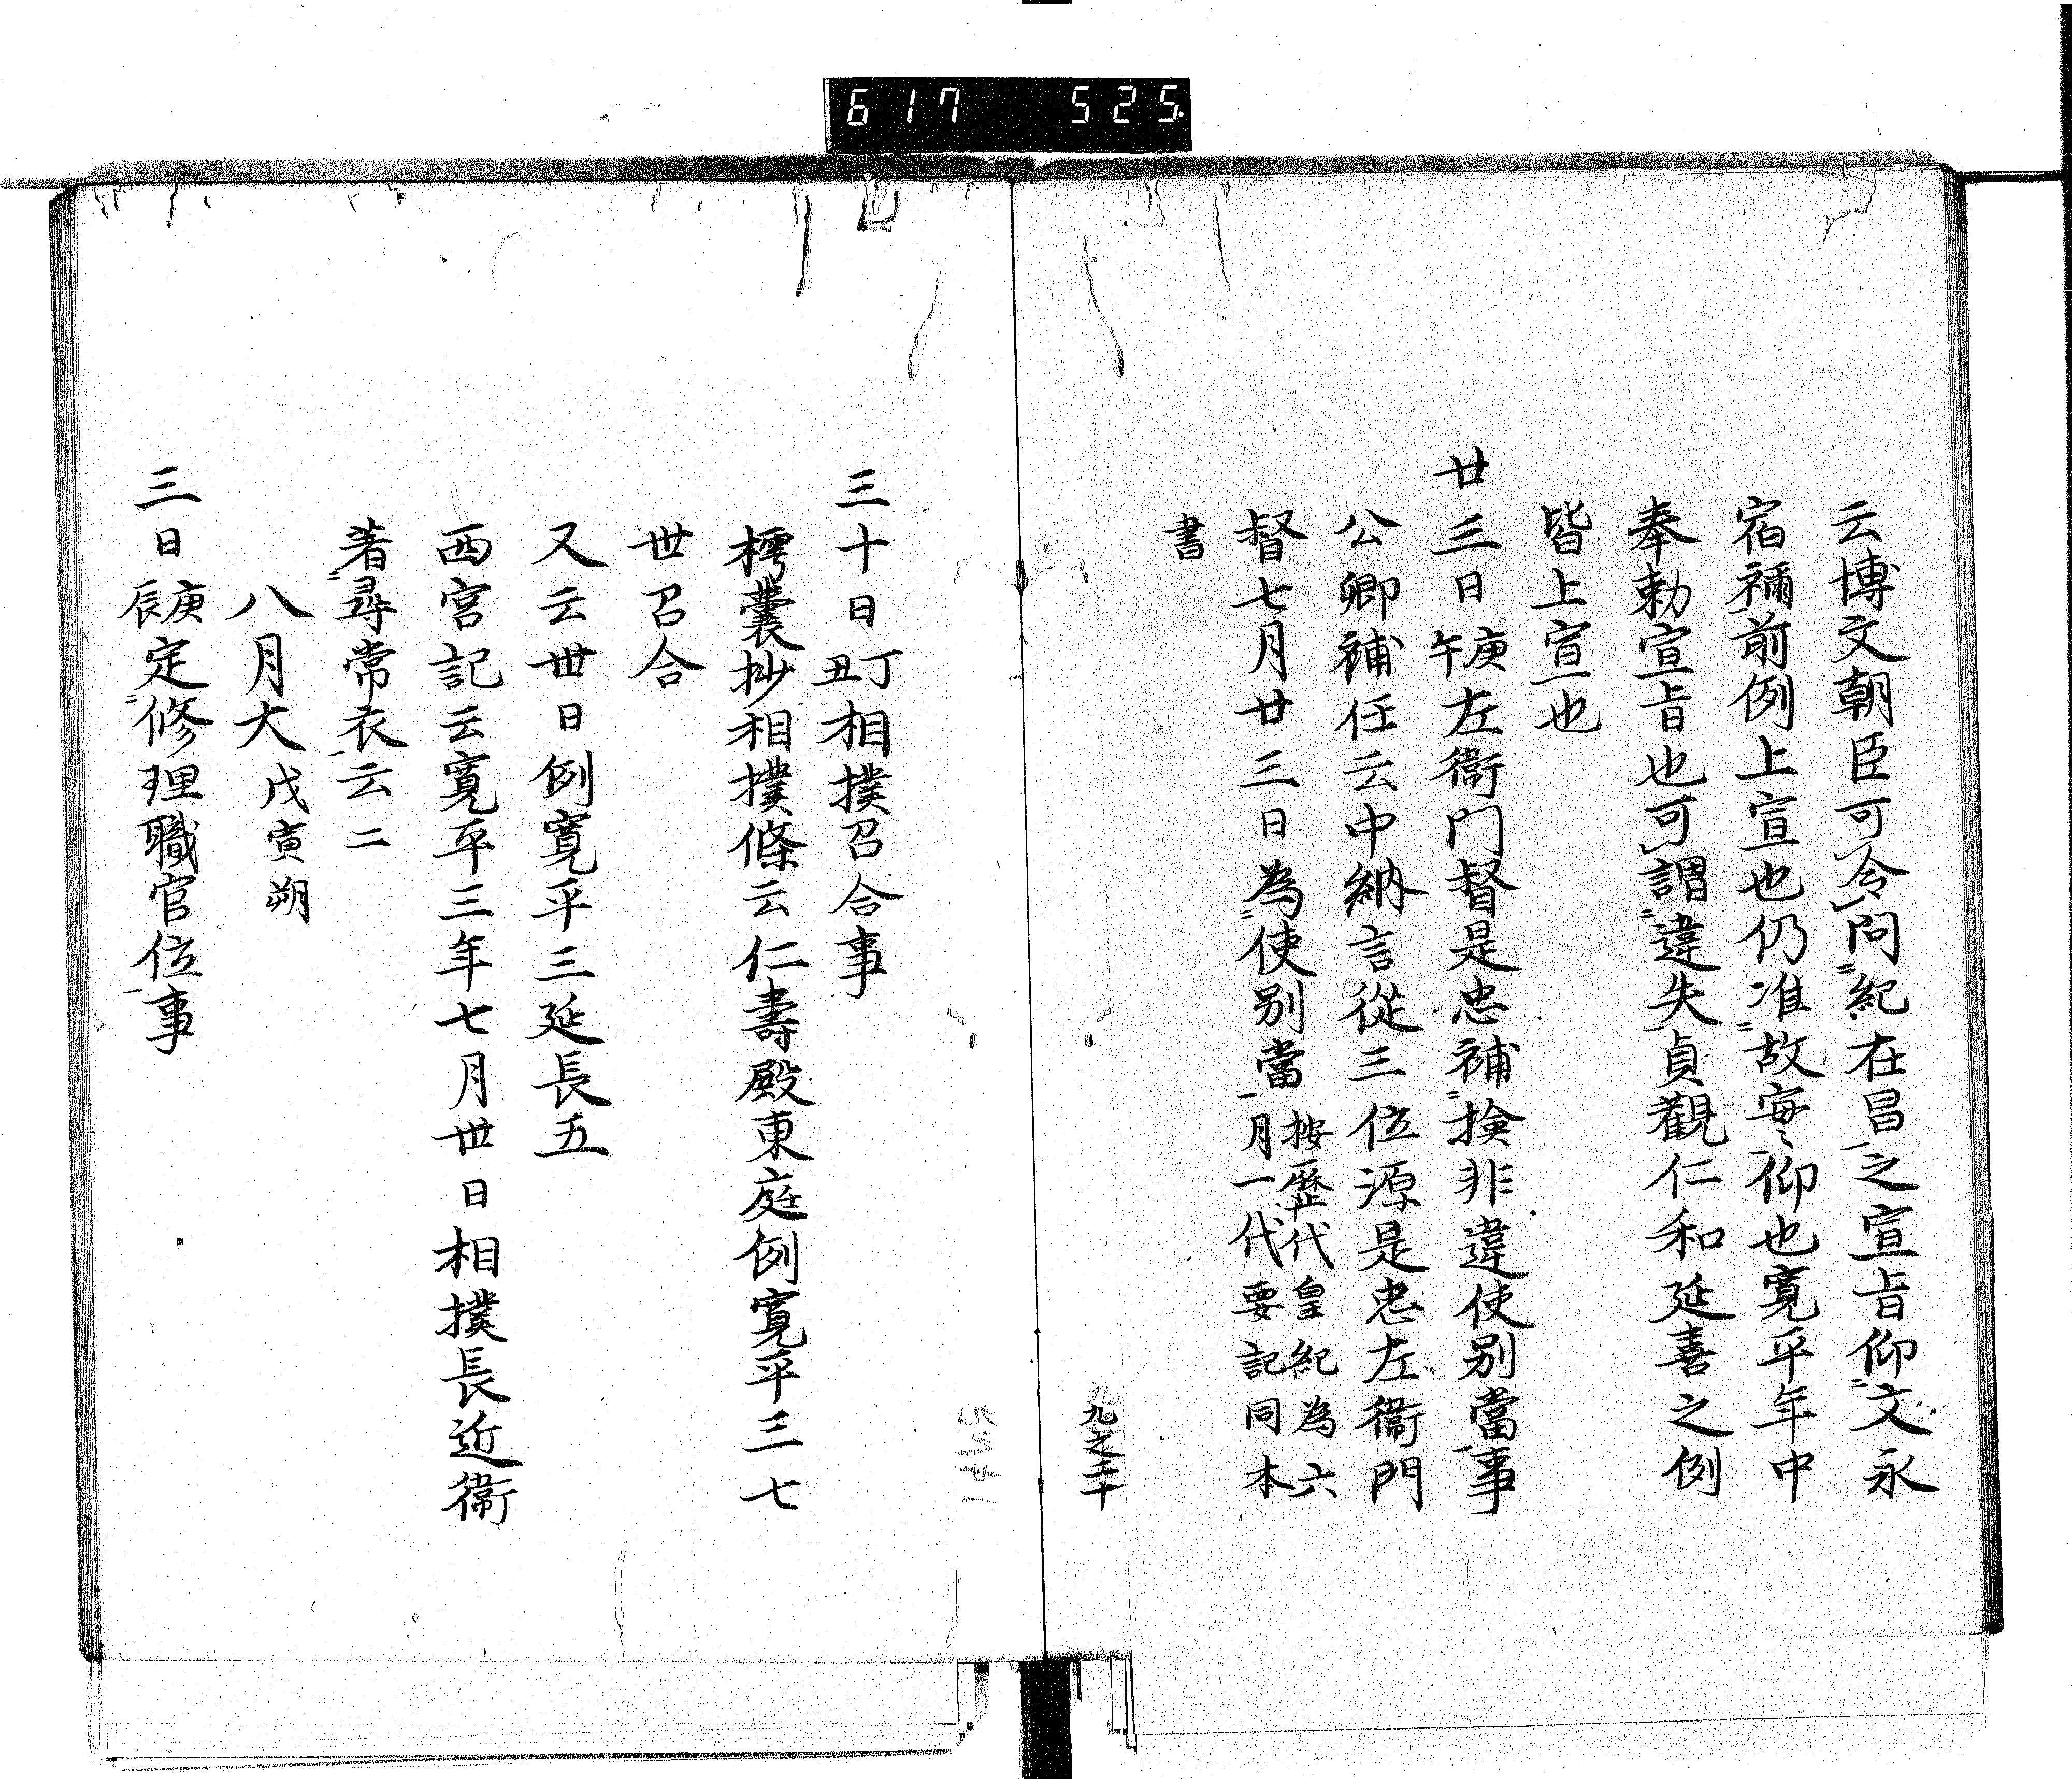 617 525
云博文朝臣可令問紀在昌之宣旨仰文永
宿禰前例上宣也仍准故実仰也寛平年中
奉勅宣旨也可謂違失貞觀仁和延喜之例
皆上宣也
廿三日庚午左衞門督是忠補撿非違使別當事
公卿補任云中納言從三位源是忠左衞門
督七月廿三日為使別當按歷代皇紀為六月一代要記同本
書
九之二十
三十日丁丑相撲召合事
樗囊抄相撲條云仁壽殿東庭例寛平三七
丗召合
又云丗日例寛平三延長五
西宮記云寛平三年七月丗日相撲長近衞
著尋常衣云二
八月大戊寅朔
三日庚辰定修理職官位事